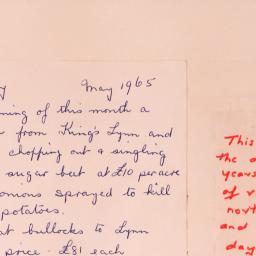 May 1965
ning of this month a
from King's Lynn and
chopping out & singling
sugar beet at £10 per acre
onions sprayed to kill
potatoes.
at bullocks to Lynn
price £81 each
This
the o
years
of r
nort
and
day